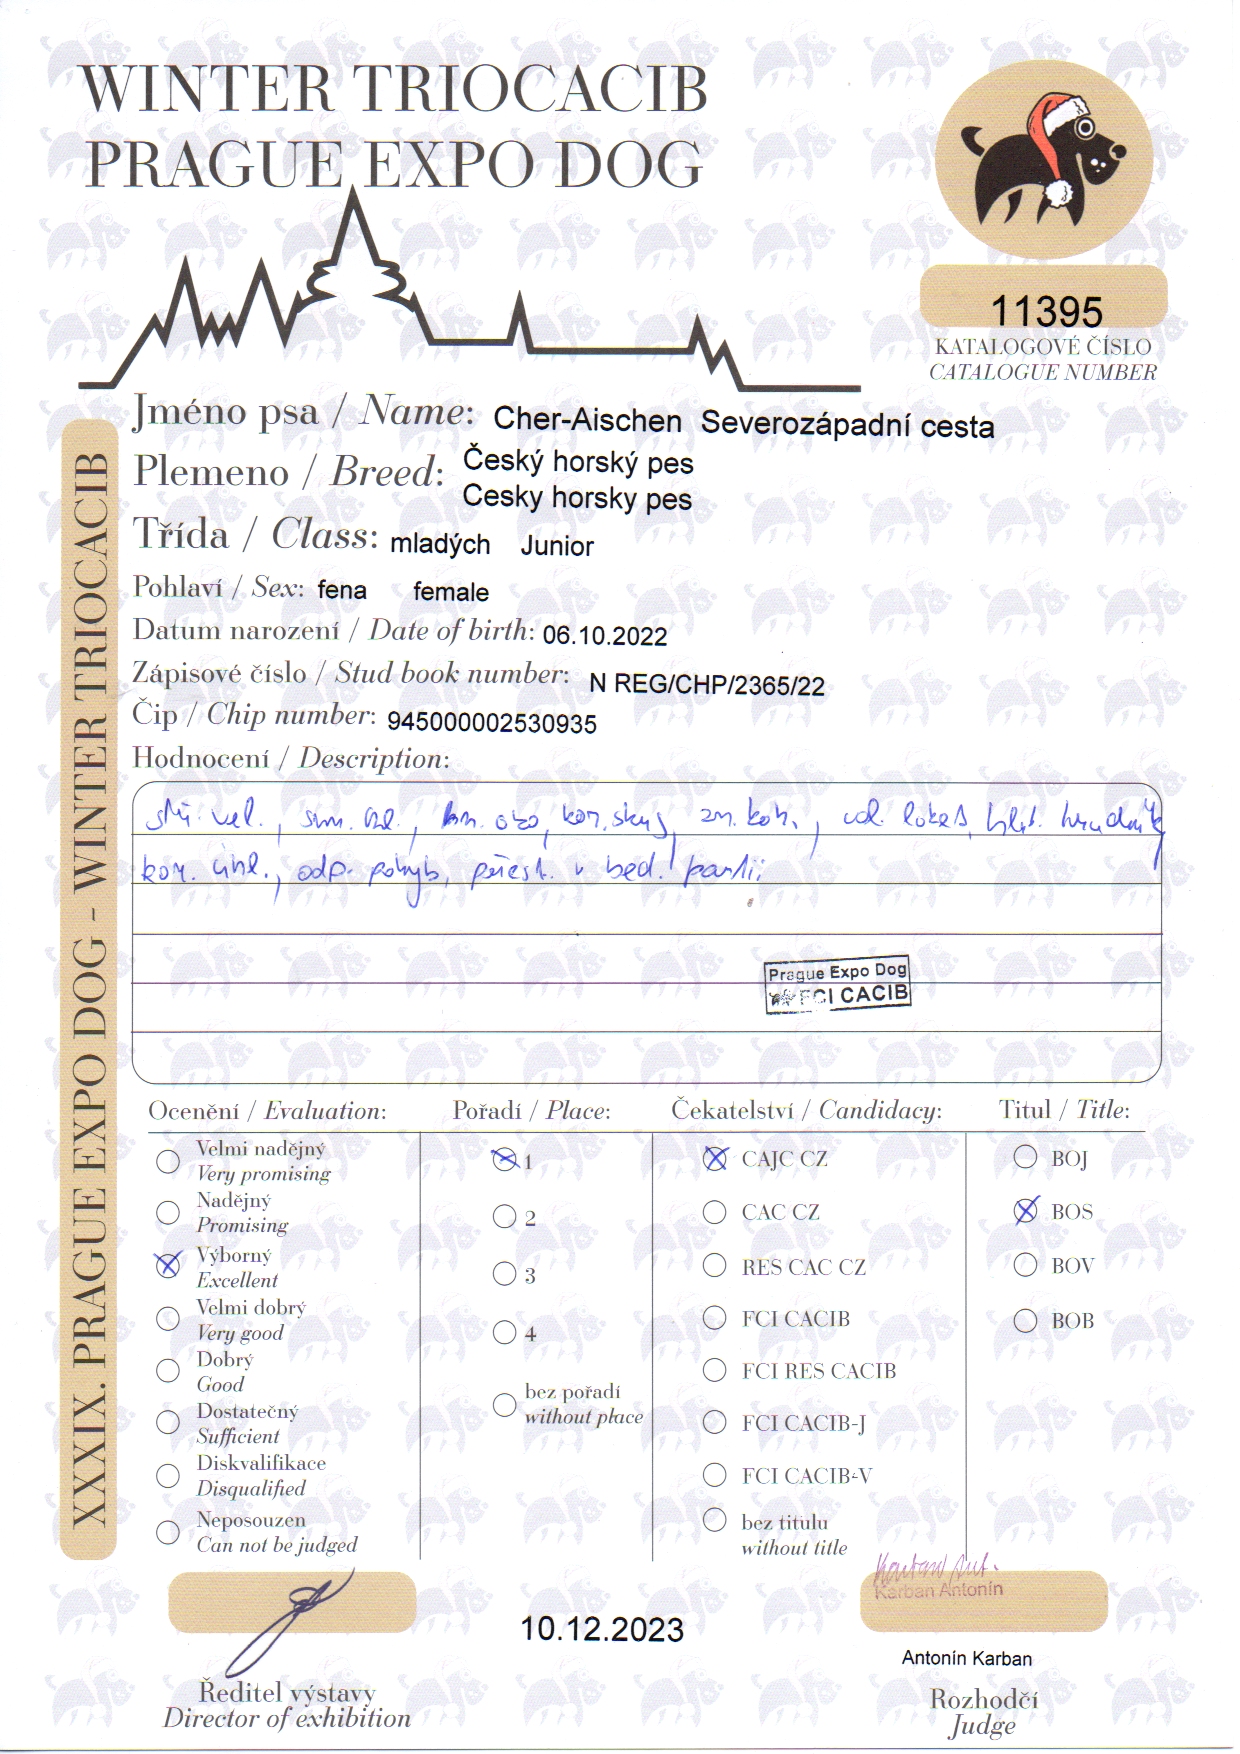 WINTER TRIOCACIB
PRAGUE EXPO DOG
11395
KATALOGOVÉ ČÍSLO
CATALOGUE NUMBER
Jméno psa / Name: Cher-Aischen Severozápadní cesta
Plemeno / Breed: Český horský pes
Cesky horsky pes
Třída / Class: mladých Junior
Pohlaví / Sex: fena female
Datum narození / Date of birth: 06.10.2022
Zápisové číslo / Stud book number: N REG/CHP/2365/22
Čip / Chip number: 945000002530935
Hodnocení / Description:
stř. vel., hn. oko, kor. skus, zn. koh., vol. loket, hlub. hrudník
kor. úhl., odp. pohyb, přest. v bed. partii
Prague Expo Dog
FCI CACIB
XXXIX. PRAGUE EXPO DOG - WINTER TRIOCACIB
Ocenění / Evaluation: Pořadí / Place: Čekatelství / Candidacy: Titul / Title:
Velmi nadějný
Very promising
Nadějný
Promising
Výborný
Excellent
Velmi dobrý
Very good
Dobrý
Good
Dostatečný
Sufficient
Diskvalifikace
Disqualified
Neposouzen
Can not be judged
1
2
3
4
bez pořadí
without place
CAJC CZ
CAC CZ
RES CAC CZ
FCI CACIB
FCI RES CACIB
FCI CACIB-J
FCI CACIB-V
bez titulu
without title
BOJ
BOS
BOV
BOB
Karban Ant.
Karban Antonín
10.12.2023
Antonín Karban
Ředitel výstavy
Director of exhibition
Rozhodčí
Judge